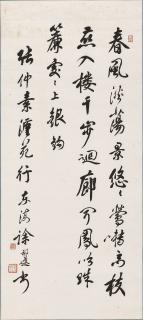 春風淡蕩景悠〻鶯囀高枝
燕入樓千步迴廊聞鳳吹珠
簾處〻上銀鉤
張仲素漢苑行 東海徐書